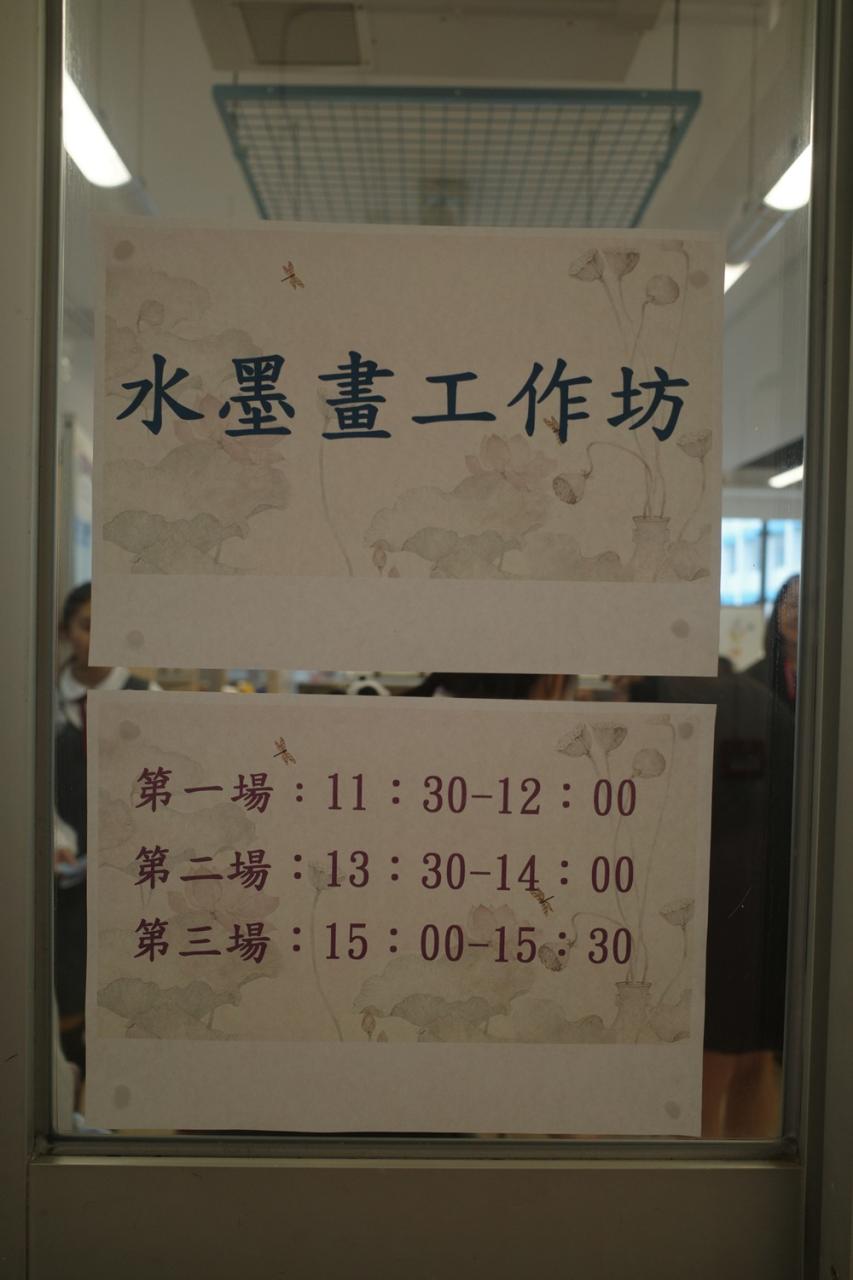 水墨畫工作坊
第一場：11：30-12：00
第二場：13：30-14：00
第三場：15：00-15：30